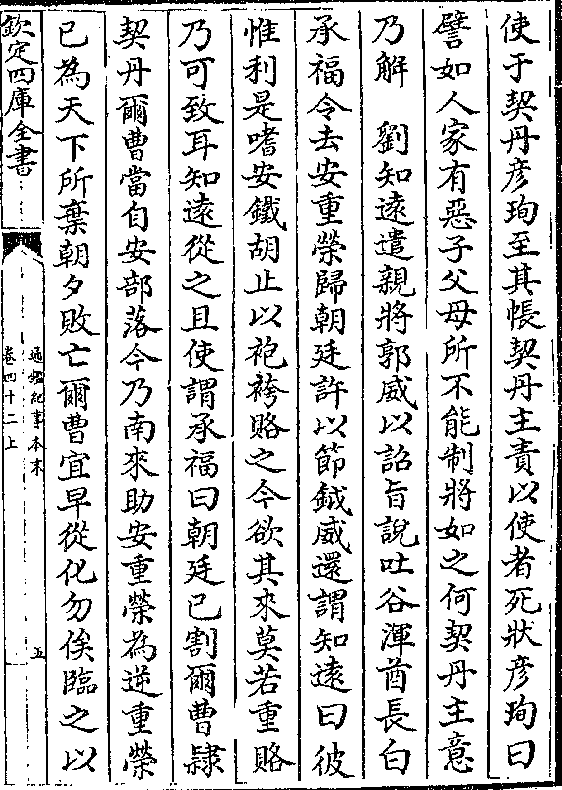 使于契丹彦珣至其帳契丹主責以使者死狀彦珣曰
譬如人家有惡子父母所不能制將如之何契丹主意
乃解　劉知遠遣親將郭威以詔旨說吐谷渾酋長白
承福令去安重榮歸朝廷許以節鉞威還謂知遠曰彼
惟利是嗜安鐵胡止以袍袴賂之今欲其來莫若重賂
乃可致耳知遠從之且使謂承福曰朝廷已割爾曹隸
契丹爾曹當自安部落今乃南來助安重榮為逆重榮
已為天下所棄朝夕敗亡爾曹宜早從化勿俟臨之以
欽定四庫全書
通鑑紀事本末
卷四十二上
五